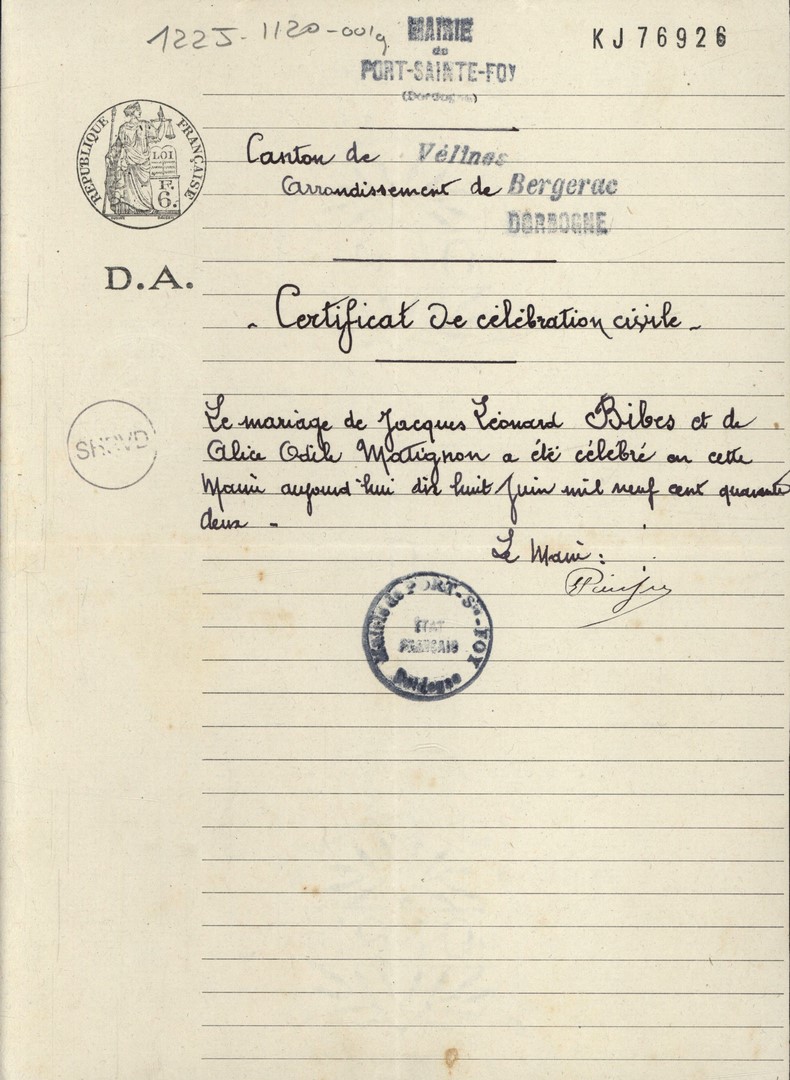 1225-1120-001g
MAIRIE
de
PORT-SAINTE-FOY
(Dordogne)
KJ 76926
RÉPUBLIQUE FRANÇAISE
LOI
F.
6.
Canton de Vélines
Arrondissement de Bergerac
DORDOGNE
D.A.
- Certificat de célébration civile -
SHRVD
Le mariage de Jacques Léonard Bibes et de
Alice Odile Matignon a été célébré en cette
Mairie aujourd'hui dix huit Juin mil neuf cent quarante
deux -
Le Maire :
Mairie de PORT-Ste-FOY
ETAT
FRANÇAIS
Dordogne